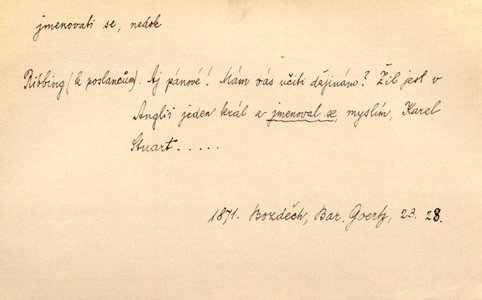 jmenovati se, nedok
Ribbing (k poslancům). Aj pánové! Mám vás učiti dějinám? Žil jest v
Anglii jeden král a jmenoval se, myslím, Karel
Stuart.....
1871. Bozděch, Bar. Goertz, 23. 28.